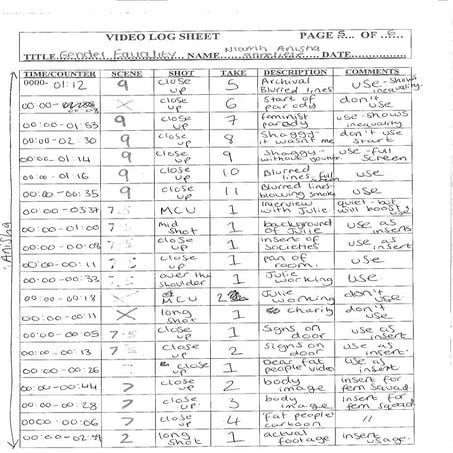 VIDEO LOG SHEET PAGE 5... OF 6...
TITLE Gender Equality NAME Niamh Anisha DATE
TIME/COUNTER SCENE SHOT TAKE DESCRIPTION COMMENTS
0000- 01:12 9 close up 5 Archival Blurred lines use - shows inequality.
00:00 - X close up 6 Start of parody don't use
00:00 - 01:53 9 close up 7 feminist parody use - shows inequality
00:00 - 02:30 9 close up 8 Shaggy- it wasn't me don't use start
00:00 - 01:14 9 close up 9 Shaggy- without use - full screen
00:00 - 01:16 9 close up 10 Blurred lines - use
00:00 - 00:35 9 close up 11 Blurred lines- blowing smoke use
00:00 - 7.5 MCU 1 Interview with Julie quiet - but will boost
00:00 - 01:00 7.5 mid shot 1 background of Julie use as inserts
00:00 - 00:08 7.5 close up 1 insert of societies use as insert
00:00 - 00:11 7.5 close up 1 pan of room. use.
00:00 - 00:33 7.5 over the shoulder 1 Julie working use
00:00 - 00:18 X MCU 2 Julie working don't use
00:00 - 00:11 X long shot 1 charity don't use.
00:00 - 00:05 7.5 close up 1 signs on door use as insert
00:00 - 00:13 7.5 close up 2 signs on door use as insert.
00:00 - 00:26 close up 1 Dear fat people video use as insert
00:00 - 00:44 7 close up 2 body image insert for fem squad.
00:00 - 00:28 7 close up 3 body image insert for fem squad.
00:00 00:06 7 close up 4 fat people cartoon //
00:00 - 2 long shot 1 actual footage insert usage.
Anisha